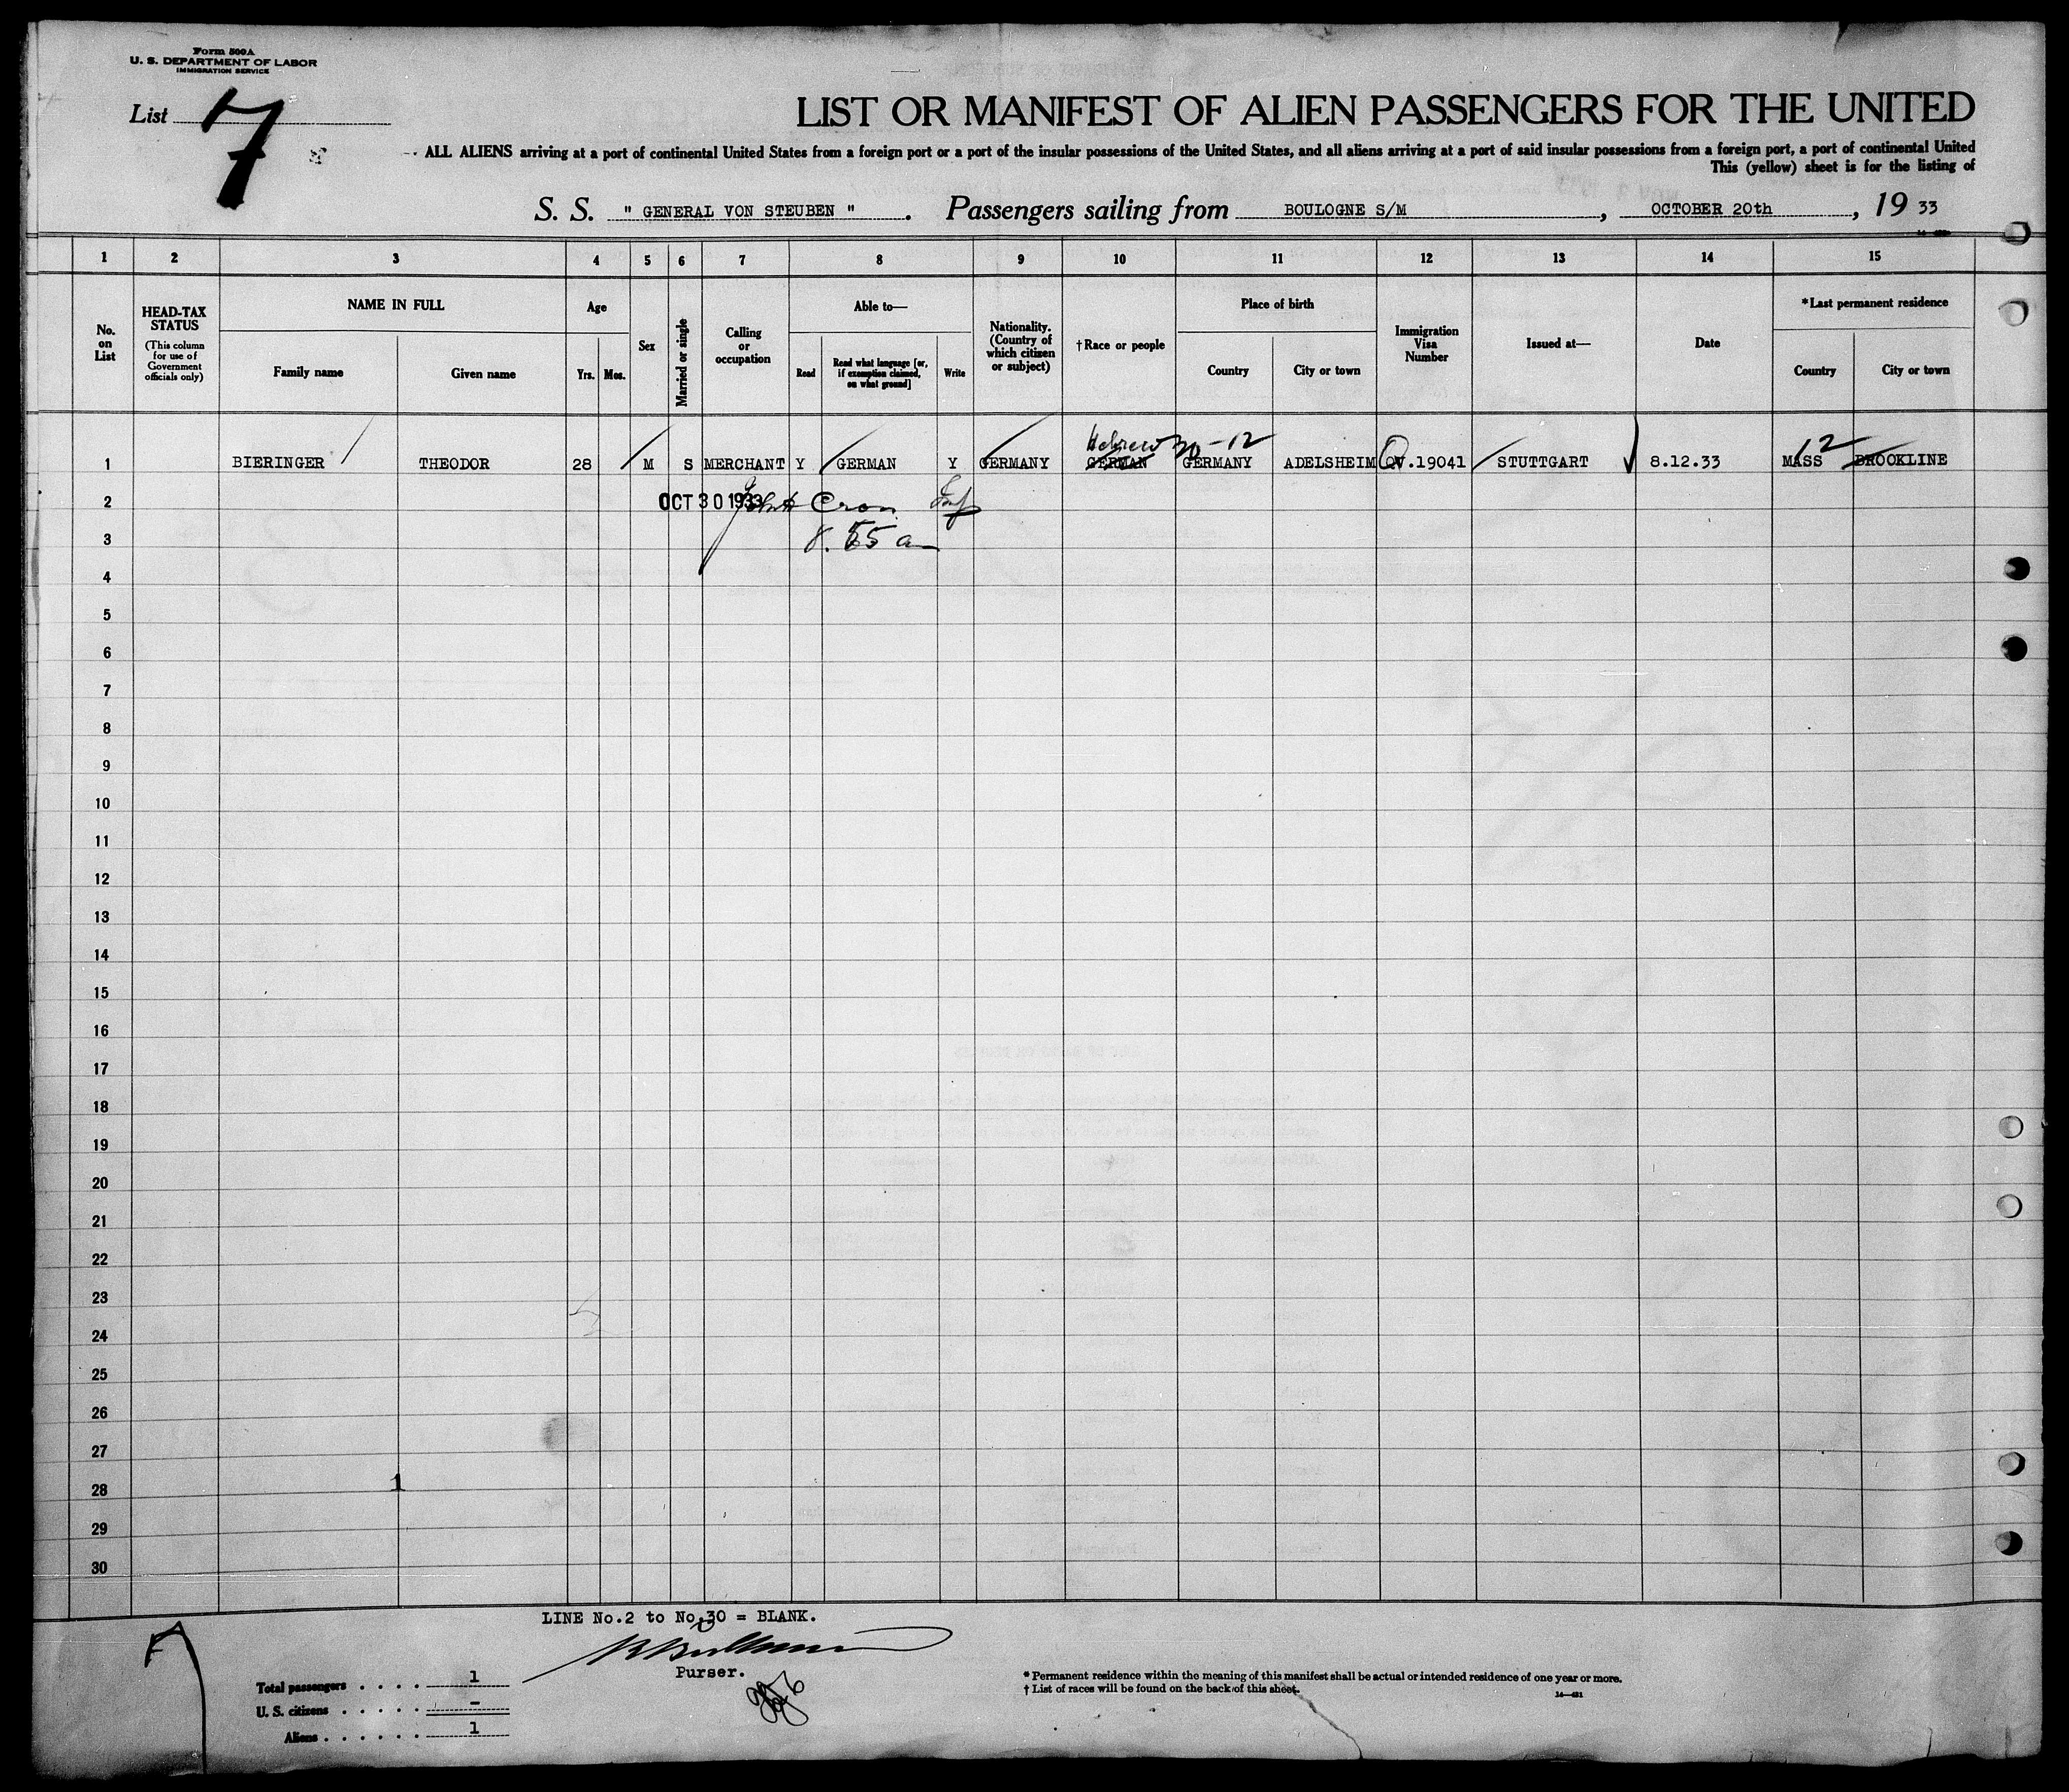 Form 500A
U. S. DEPARTMENT OF LABOR
IMMIGRATION SERVICE
List 7
LIST OR MANIFEST OF ALIEN PASSENGERS FOR THE UNITED
ALL ALIENS arriving at a port of continental United States from a foreign port or a port of the insular possessions of the United States, and all aliens arriving at a port of said insular possessions from a foreign port, a port of continental United
This (yellow) sheet is for the listing of
S. S. " GENERAL VON STEUBEN ". Passengers sailing from BOULOGNE S/M, OCTOBER 20th, 1933
1 2 3 4 5 6 7 8 9 10 11 12 13 14 15
No. on List
HEAD-TAX STATUS
(This column for use of Government officials only)
NAME IN FULL
Family name
Given name
Age
Yrs.
Mos.
Sex
Married or single
Calling or occupation
Able to—
Read
Read what language [or, if exemption claimed, on what ground]
Write
Nationality. (Country of which citizen or subject)
†Race or people
Place of birth
Country
City or town
Immigration Visa Number
Issued at—
Date
*Last permanent residence
Country
City or town
Hebrew 30-12 12
1 BIERINGER THEODOR 28 M S MERCHANT Y GERMAN Y GERMANY GERMAN GERMANY ADELSHEIM QV.19041 STUTTGART 8.12.33 MASS BROOKLINE
2 OCT 30 1933 Cron Insp
3 8.55 a
4
5
6
7
8
9
10
11
12
13
14
15
16
17
18
19
20
21
22
23
24
25
26
27
28 1
29
30
LINE No.2 to No.30 = BLANK.
Purser.
Total passengers . . . . 1
U. S. citizens . . . . . -
Aliens . . . . . . 1
* Permanent residence within the meaning of this manifest shall be actual or intended residence of one year or more.
† List of races will be found on the back of this sheet.